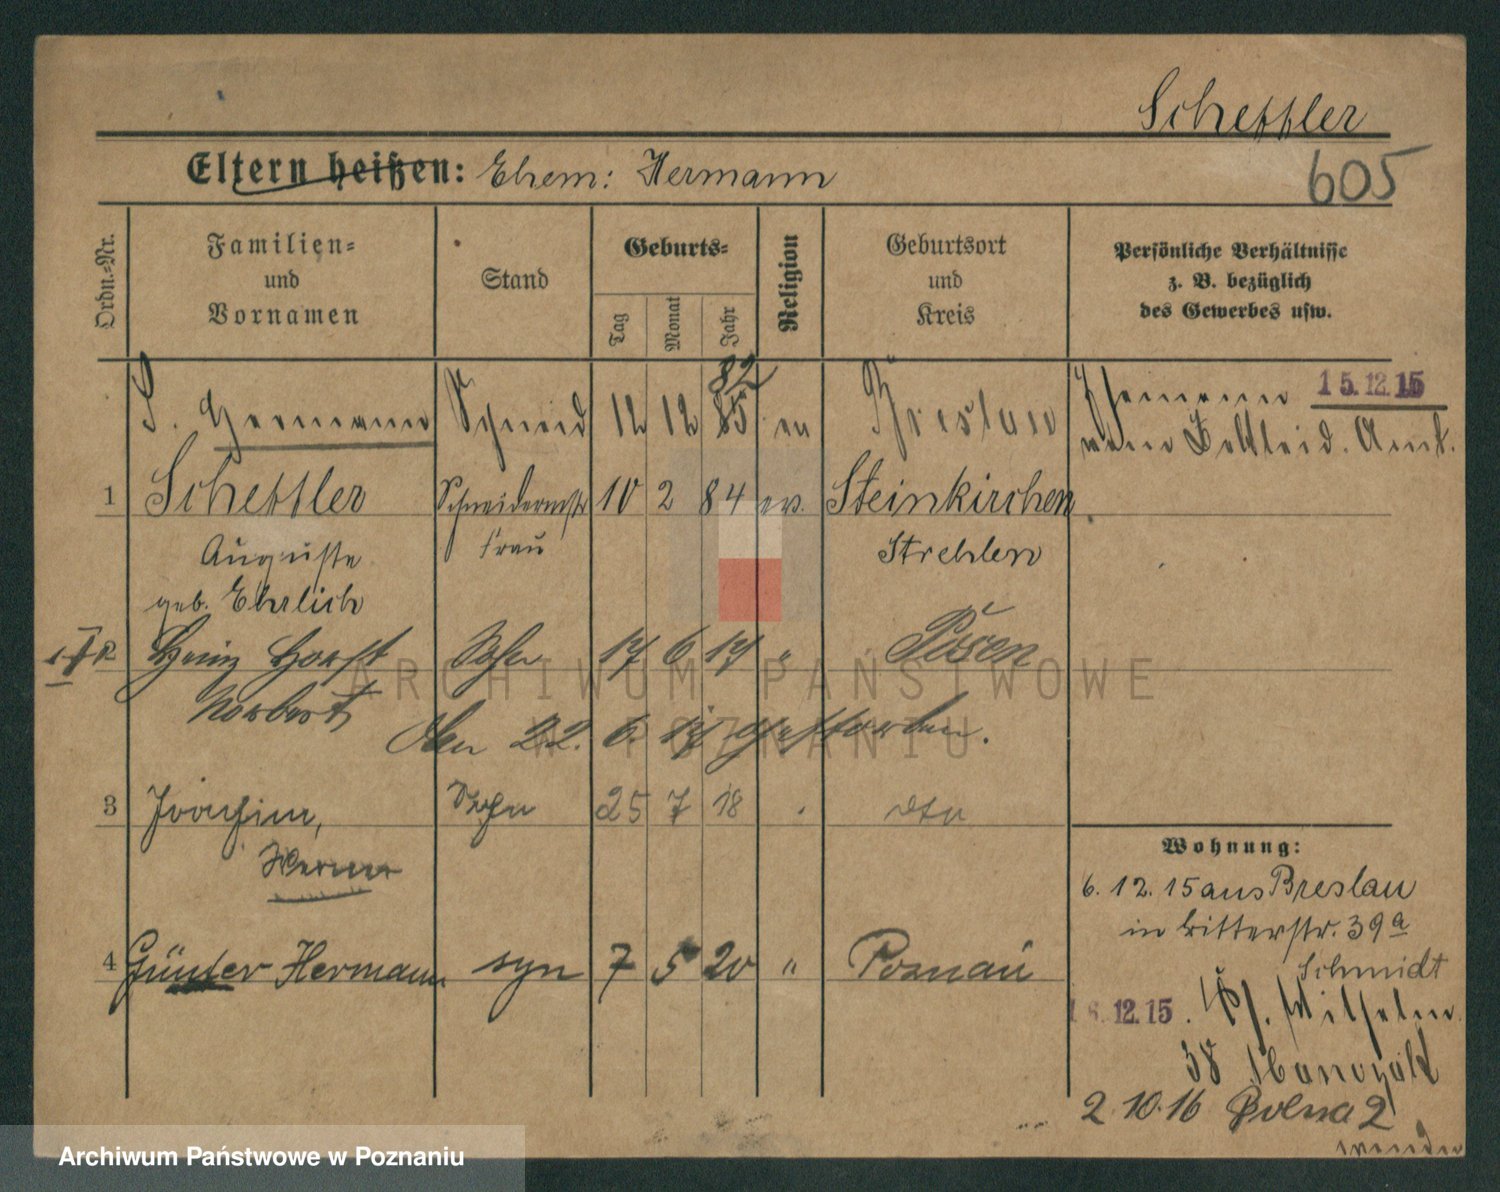 Scheffler
605
Eltern heißen: Ehem: Hermann
Ordn.=Nr.
Familien=
und
Vornamen
Stand
Geburts=
Tag
Monat
Jahr
Religion
Geburtsort
und
Kreis
Persönliche Verhältnisse
z. B. bezüglich
des Gewerbes usw.
82
S. Hermann Schneid 12 12 85 ev Breslau Ehemann 15.12.15
Amt.
1 Scheffler Schneidermstr 10 2 84 ev. Steinkirchen
Auguste frau Strehlen
geb. Ehrlich
2 Heinz Horst Sohn 17 6 17 " Posen
Norbert
Am 22. 6. 17 gestorben.
3 Joachim, Sohn 25 7 18 dto
Werner
4 Günter Hermann syn 7 5 20 " Poznań
Wohnung:
6. 12. 15 aus Breslau
in Ritterstr. 39a
Schmidt
16.12.15. Wilhelm
38
2 10.16
wenden
ARCHIWUM PAŃSTWOWE
W POZNANIU
Archiwum Państwowe w Poznaniu